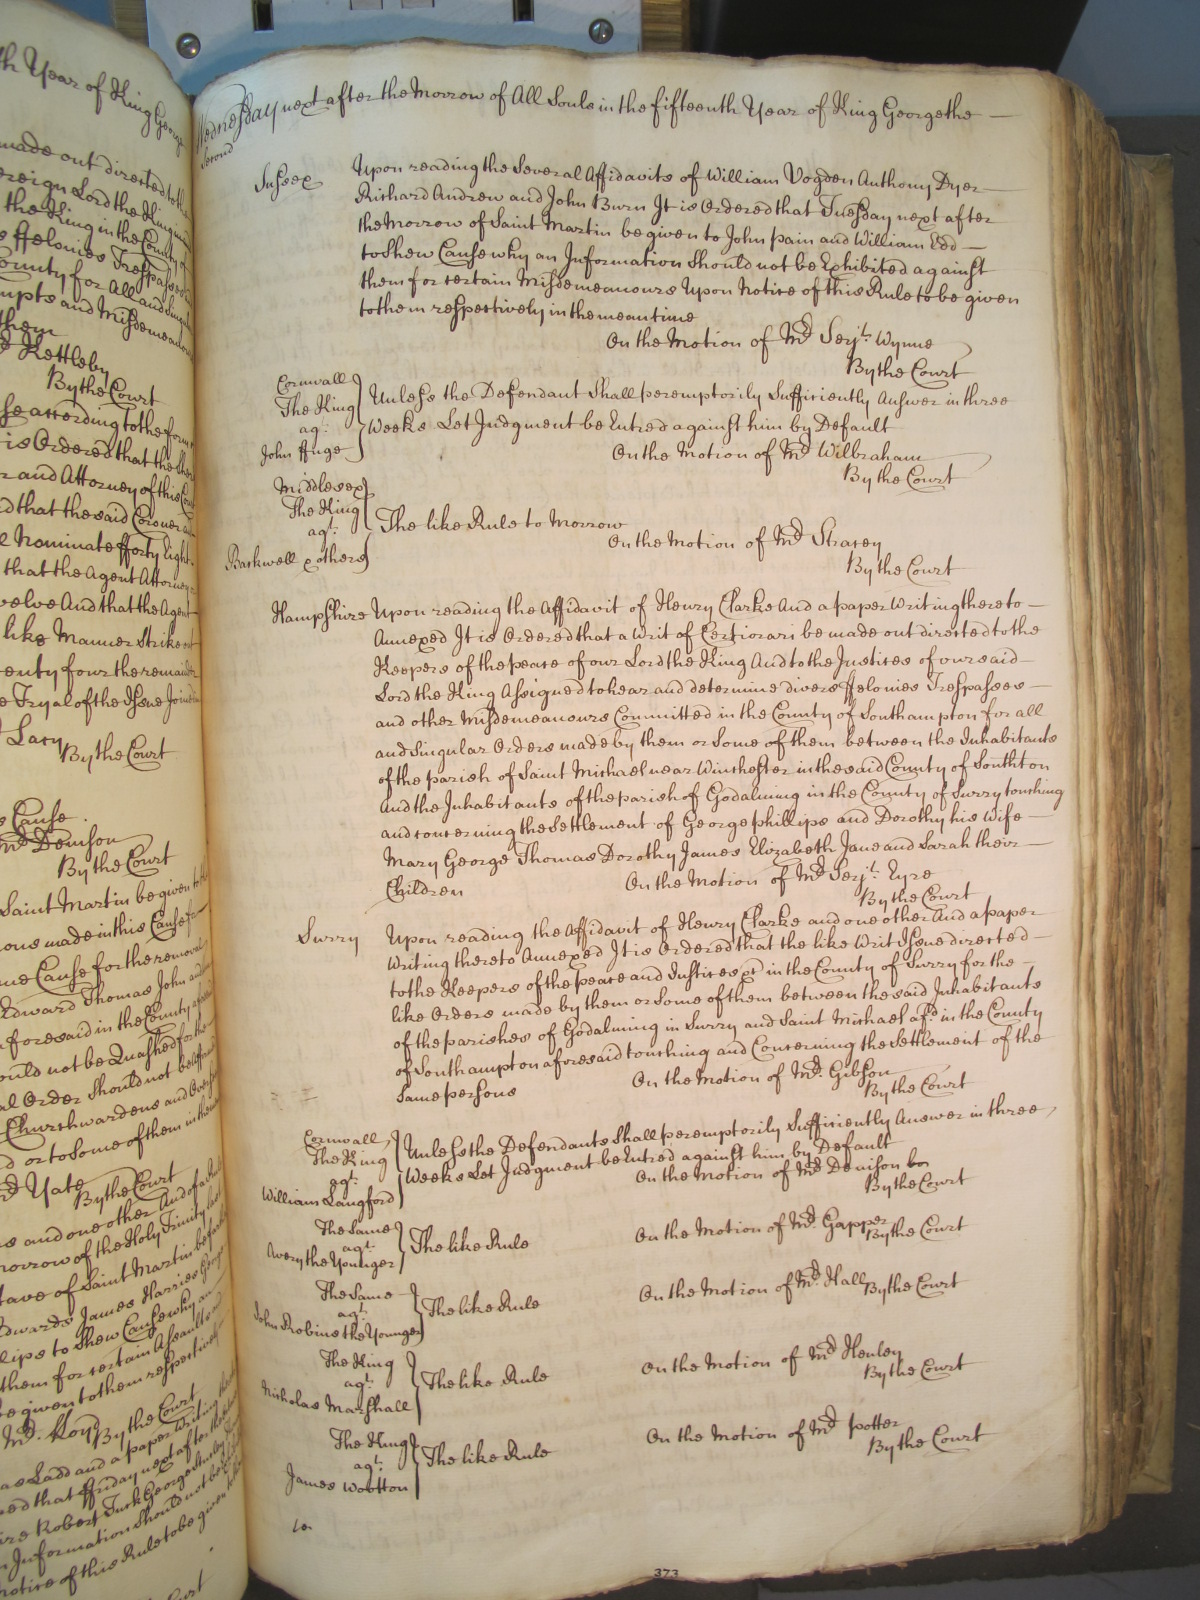 th Year of King George
made out directed to the
ereign Lord the King
the King in the County of
s ffelonies Trespasses
County for All and Singular
mpts and Misdemeanours
them
Kettleby
By the Court
se according to the form
is Ordered that the
r and Attorney of this Court
d that the said Coroner and
l Nominate fforty Eight
that the Agent Attorney
welve And that the Agent
like Manner Strike out
enty four the remainder
e Tryal of the Issue Joined
Lacy
By the Court
s Cause
Mr. Denison
By the Court
Saint Martin be given to
ons made in this Cause for
me Cause for the removal
Edward Thomas John and
aforesaid in the County
ould not be Quashed for the
al Order Should not be
Churchwardens and
d or to Some of them in
Yate
By the Court
s and one other And of a Rule
morrow of the Holy Trinity last
tave of Saint Martin
Edwards James Harries George
lips to Shew Cause why an
them for certain Assaults
be given to them respectively
Mr.
By the Court
as Ladd and a paper Writing
red that ffriday next after the
ire Robert Turk George
n Information Should not be
notice of this Rule to be given
Court
Wednesday next after the Morrow of All Souls in the fifteenth Year of King George the
Second
Sussex
Upon reading the Several Affidavits of William Vogden Anthony Dyer
Richard Andrew and John Burn It is Ordered that Tuesday next after
the Morrow of Saint Martin be given to John Pain and William Edd
to Shew Cause why an Information Should not be Exhibited against
them for certain Misdemeanours Upon Notice of this Rule to be given
to them respectively in the mean time
On the Motion of Mr. Serjt. Wynne
By the Court
Cornwall
The King
agt.
John Auge
Unless the Defendant Shall peremptorily Sufficiently Answer in three
Weeks Let Judgment be Entred against him by Default
On the Motion of Mr. Wilbraham
By the Court
Middlesex
The King
agt.
Barkwell & others
The like Rule to Morrow
On the Motion of Mr. Stracey
By the Court
Hampshire
Upon reading the Affidavit of Henry Clarke And a paper Writing thereto
Annexed It is Ordered that a Writ of Certiorari be made out directed to the
Keepers of the peace of our Lord the King And to the Justices of our said
Lord the King Assigned to hear and determine divers ffelonies Trespasses
and other Misdemeanours Committed in the County of Southampton for all
and Singular Orders made by them or Some of them between the Inhabitants
of the parish of Saint Michael near Winchester in the said County of Southton
And the Inhabitants of the parish of Godalming in the County of Surry touching
and concerning the Settlement of George phillips and Dorothy his Wife
Mary George Thomas Dorothy James Elizabeth Jane and Sarah their
Children
On the Motion of Mr. Serjt. Eyre
By the Court
Surry
Upon reading the Affidavit of Henry Clarke and one other And a paper
Writing thereto Annexed It is Ordered that the like Writ Issue directed
to the Keepers of the peace and Justices &c in the County of Surry for the
like Orders made by them or Some of them between the said Inhabitants
of the parishes of Godalming in Surry and Saint Michael afd. in the County
of Southampton aforesaid touching and Concerning the Settlement of the
Same persons
On the Motion of Mr. Gibson
By the Court
Cornwall
The King
agt.
William Langford
Unless the Defendants Shall peremptorily Sufficiently Answer in three
Weeks Let Judgment be Entred against him by Default
On the Motion of Mr. Denison
By the Court
The Same
agt.
Avery the Younger
The like Rule
On the Motion of Mr. Gapper
By the Court
The Same
agt.
John Robins the Younger
The like Rule
On the Motion of Mr. Hall
By the Court
The King
agt.
Nicholas Marshall
The like Rule
On the Motion of Mr. Henley
By the Court
The King
agt.
James Wootton
The like Rule
On the Motion of Mr. Potter
By the Court
373